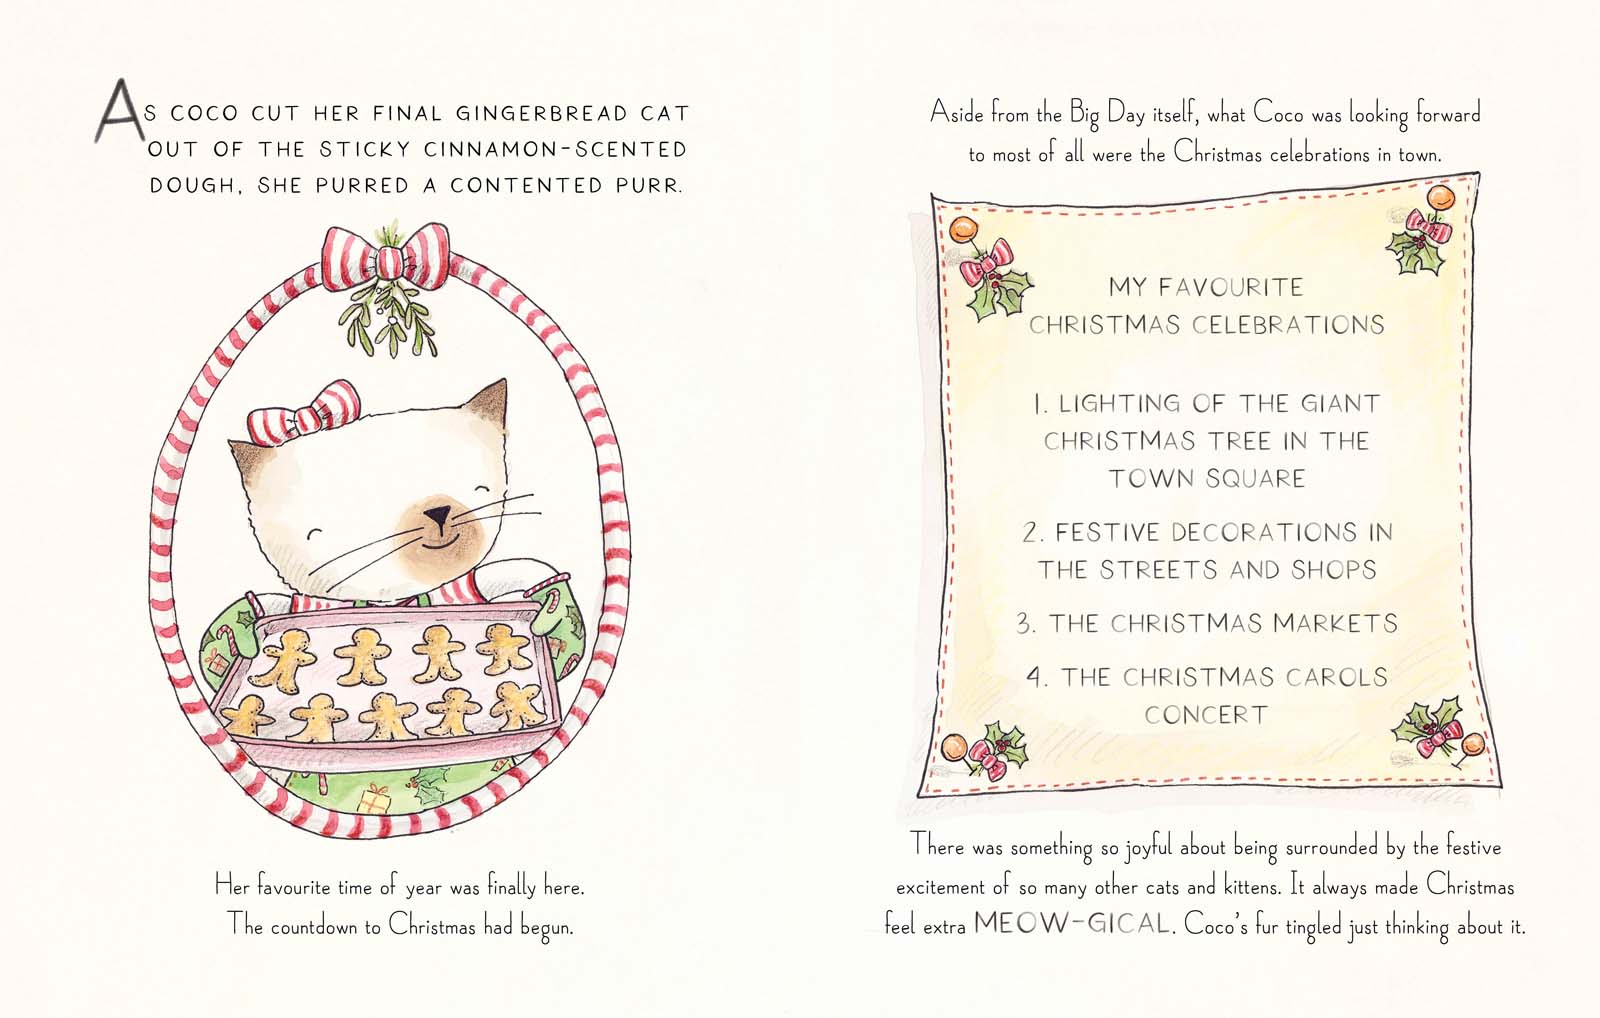 AS COCO CUT HER FINAL GINGERBREAD CAT
OUT OF THE STICKY CINNAMON-SCENTED
DOUGH, SHE PURRED A CONTENTED PURR.
Her favourite time of year was finally here.
The countdown to Christmas had begun.
Aside from the Big Day itself, what Coco was looking forward
to most of all were the Christmas celebrations in town.
MY FAVOURITE
CHRISTMAS CELEBRATIONS
1. LIGHTING OF THE GIANT
CHRISTMAS TREE IN THE
TOWN SQUARE
2. FESTIVE DECORATIONS IN
THE STREETS AND SHOPS
3. THE CHRISTMAS MARKETS
4. THE CHRISTMAS CAROLS
CONCERT
There was something so joyful about being surrounded by the festive
excitement of so many other cats and kittens. It always made Christmas
feel extra MEOW-GICAL. Coco's fur tingled just thinking about it.